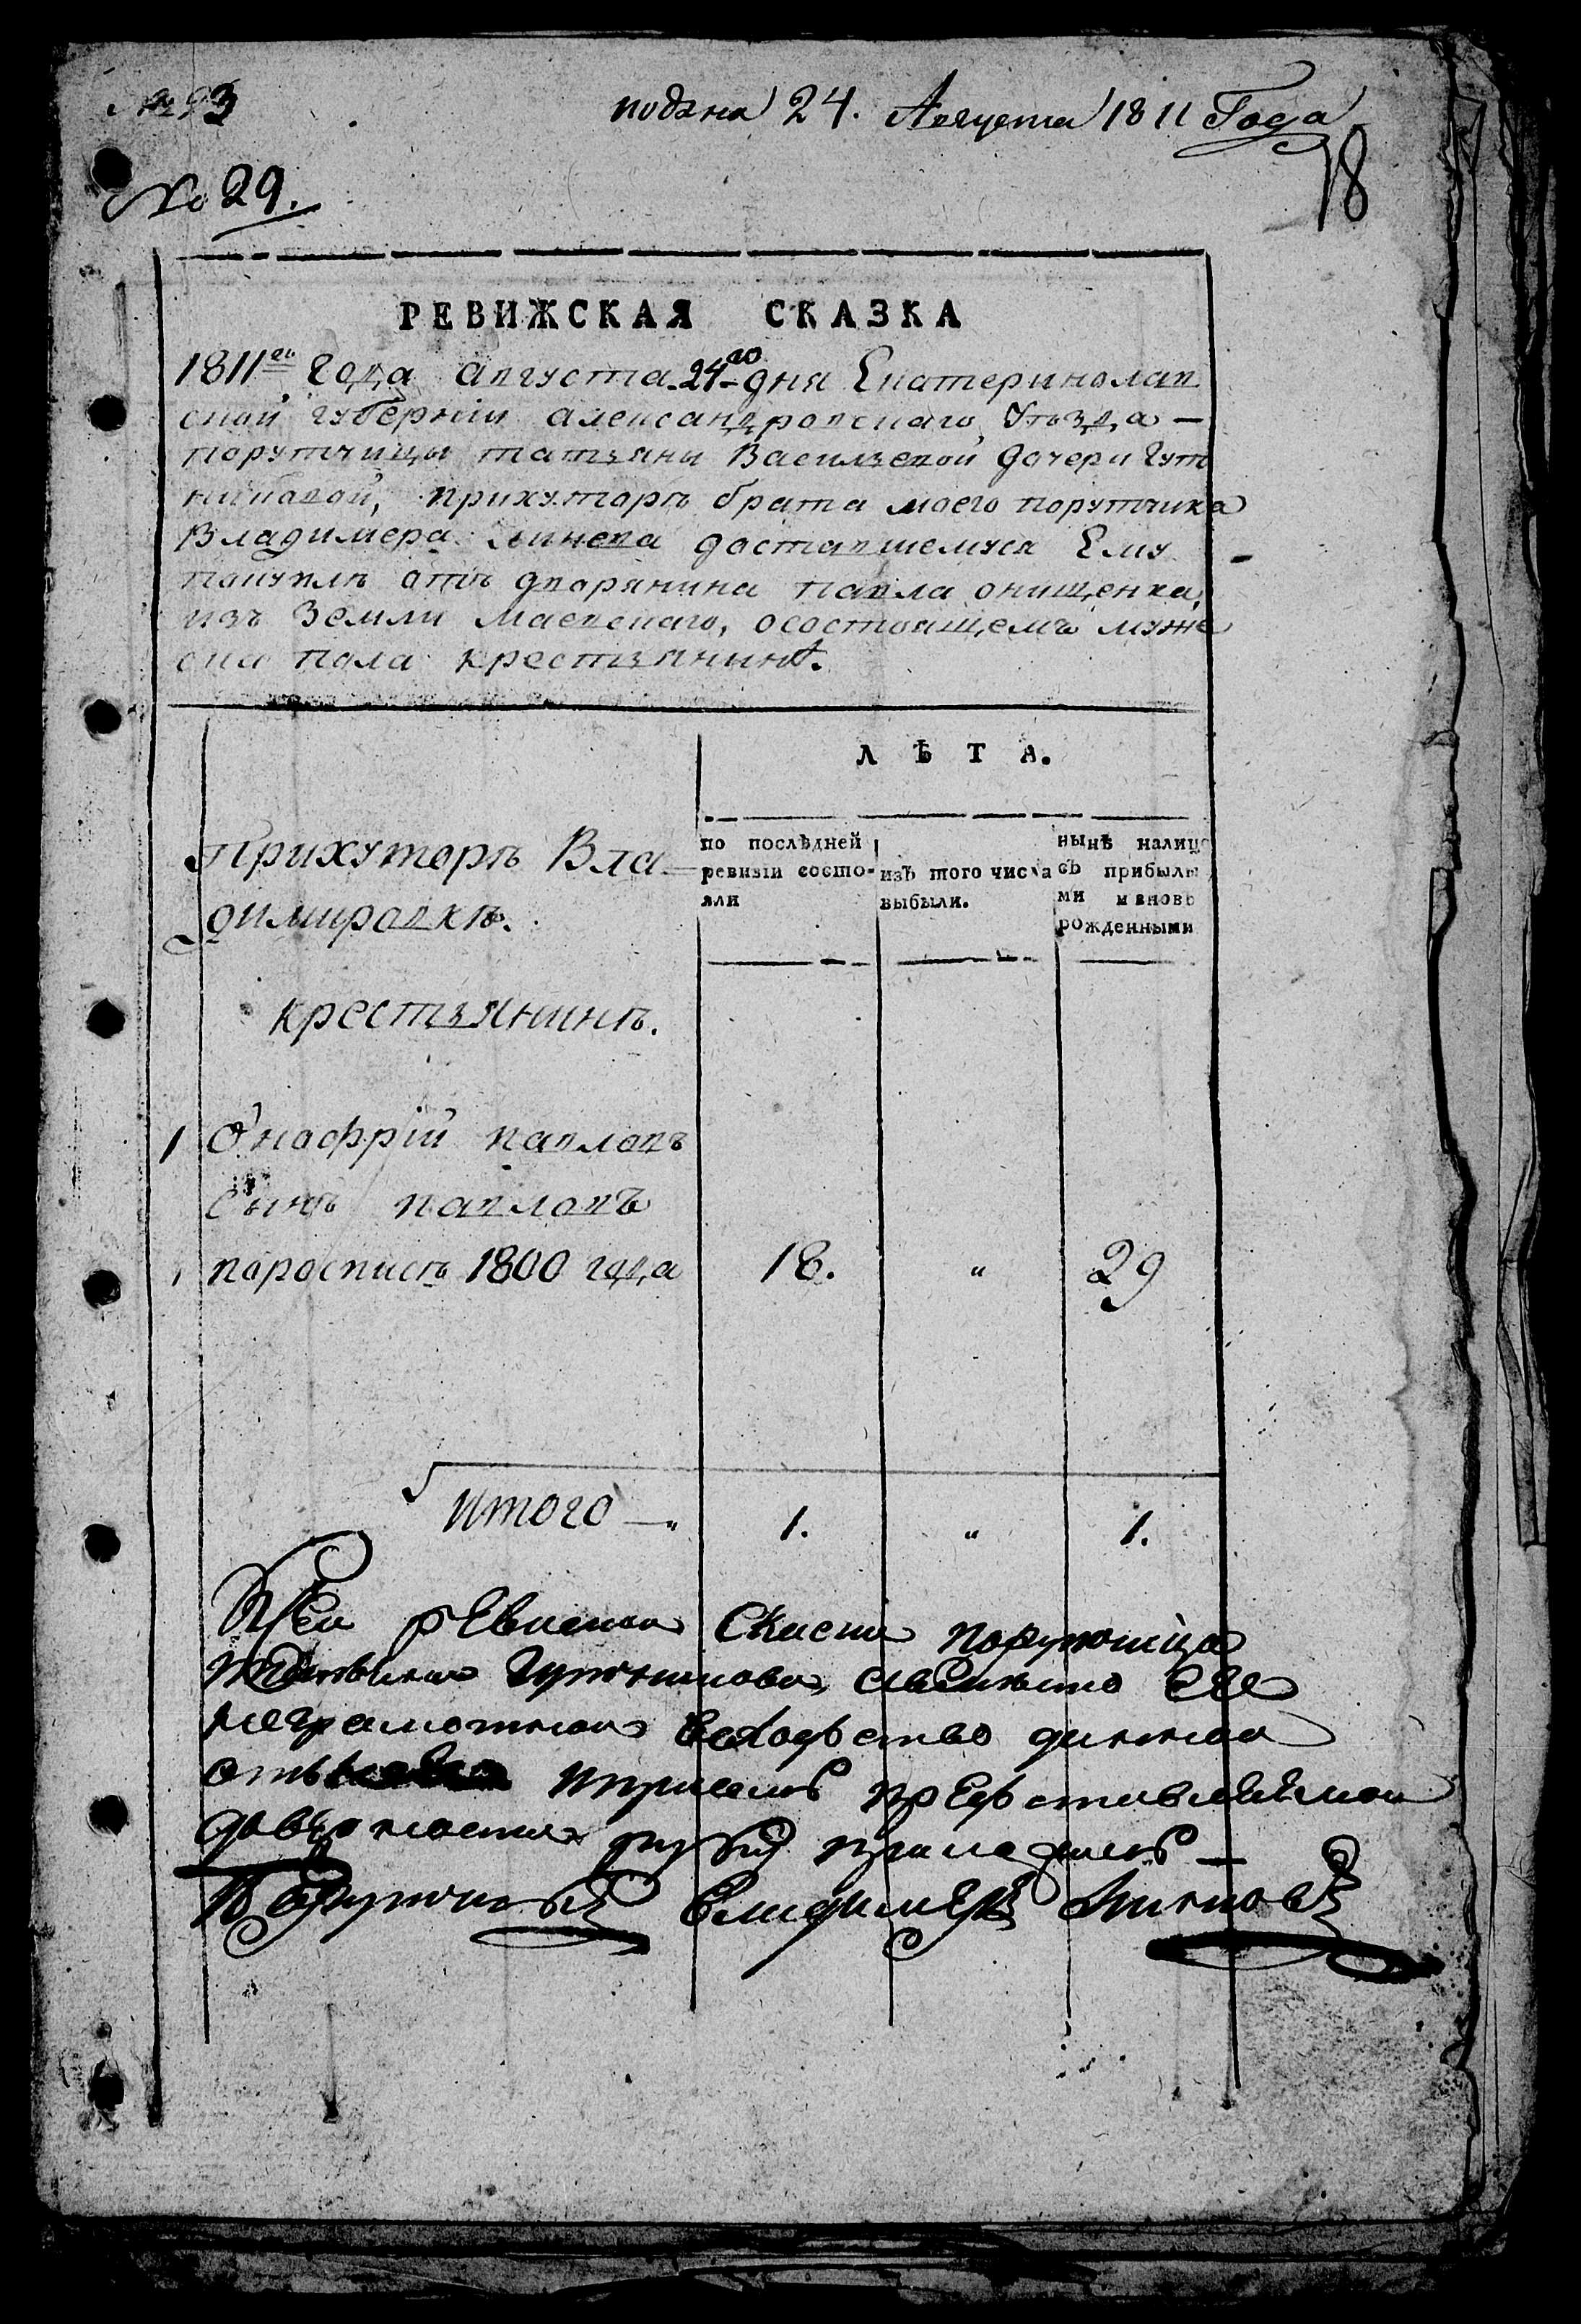 № 93
подана 24. Августа 1811 Года
18
№ 29.
РЕВИЖСКАЯ СКАЗКА
1811го года августа 24го дня Екатеринослав
ской губерніи александровскаго уѣзда —
порутчицы татьяны Васильевой дочери Гут
никовой, прихуторѣ брата моего порутчика
Владимера доставшемуся Ему
покупкѣ отъ дворянина павла онищенка,
изъ Земли маевскаго, осостоящемъ муже
ска пола крестьянинѣ.
ЛѢТА.
Прихуторѣ Вла
димировкѣ.
по послѣдней ревизіи состо-
яли
изъ того числа
выбыли.
нынѣ налицо
съ прибылы
ми и вновь
рожденными
крестьянинъ.
1 Онофрій павловъ
сынъ павловъ
поросписи 1800 года 18. " 29
итого — 1. " 1.
Ксей ревиской Скаски порутчица
татьяна Гутникова, авместо Ее
неграмотной
отъ
руку приложилъ —
Порутчикъ Владимеръ